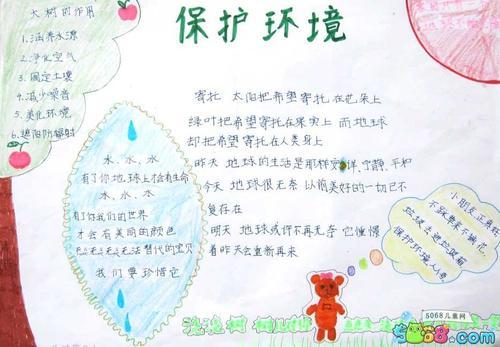 保护环境
大树的作用
1.涵养水源
2.净化空气
3.固定土壤
4.减少噪音
5.美化环境
6.遮阳防辐射
寄托 太阳把希望寄托在花朵上
绿叶把希望寄托在果实上 而地球
却把希望寄托在人类身上
昨天 地球的生活是那样安详、宁静、平和
今天 地球很无奈 以前美好的一切已不
复存在
明天 地球或许不再无奈 它憧憬
着昨天会重新再来
水、水、水
有了你地球上才会有生命
水、水、水
有了你我们的世界
才会有美丽的颜色
无法替代的宝贝
我们要珍惜它
小朋友正来好
不采花来不摘花
保护环境人人夸
5068儿童网
5068.com